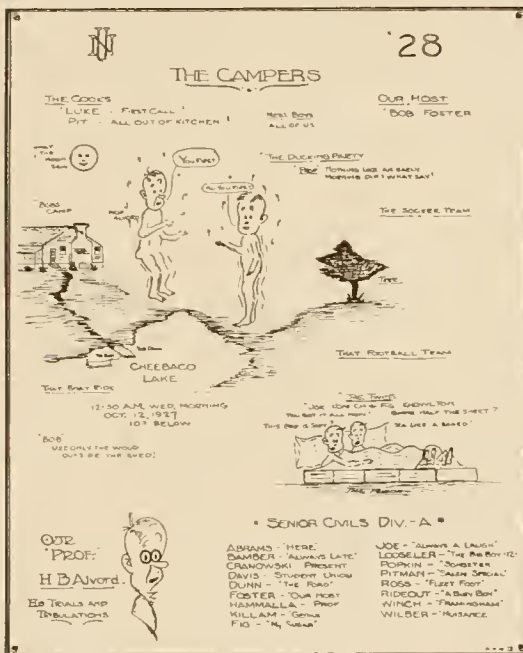 NU
'28
THE CAMPERS
THE COOKS
"LUKE - FIRST CALL"
PIT - ALL OUT OF KITCHEN!
MESS BOYS
ALL OF US
OUR HOST
"BOB FOSTER
WHAT THE MOON SAW
YOU FIRST
NO YOU FIRST
THE DUCKING PARTY
NOTHING LIKE AN EARLY
MORNING DIP! WHAT SAY!
"BOBS CAMP
THE SOCCER TEAM
TREE
CHEEBACO
LAKE
THAT FOOTBALL TEAM
THAT BOAT RIDE
12:30 A.M. WED. MORNING
OCT. 12, 1927
10° BELOW
"BOB"
USE ONLY THE WOOD
OUTSIDE THE SHED!
THE TWINS
"JOE
FIG KNOWLTON
YOU GOT IT ALL NOW"
GIMME HALF THE SHEET?
THIS BED IS SOFT
YEA LIKE A BOARD"
OUR
"PROF."
H B Alvord.
HIS TRIALS AND
TRIBULATIONS
SENIOR CIVILS DIV. - A
ABRAMS - "HERE"
BAMBER - "ALWAYS LATE"
CRANOWSKI PRESENT
DAVIS - STUDENT UNION
DUNN - "THE FORD"
FOSTER - "OUR HOST
HAMMALLA - PROF
KILLAM - GENIUS
FIG - "MY SWEAR"
JOE - "ALWAYS A LAUGH"
LOOSELER - "THE BIG BOY
POPKIN - "SONGSTER
PITMAN - "SALEM SPECIAL"
ROSS - "FLEET FOOT"
RIDEOUT - "A BUSY BOY"
WINCH - "FRAMINGHAM"
WILBER - "NUISANCE